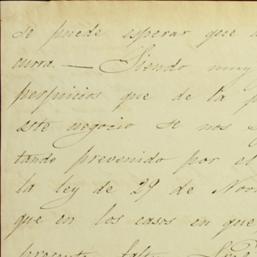 se puede esperar que
mora. — Siendo muy
perjuicios que de la p
este negocio se nos s
tando prevenido por el
la ley de 29 de Nov
que en los casos en que